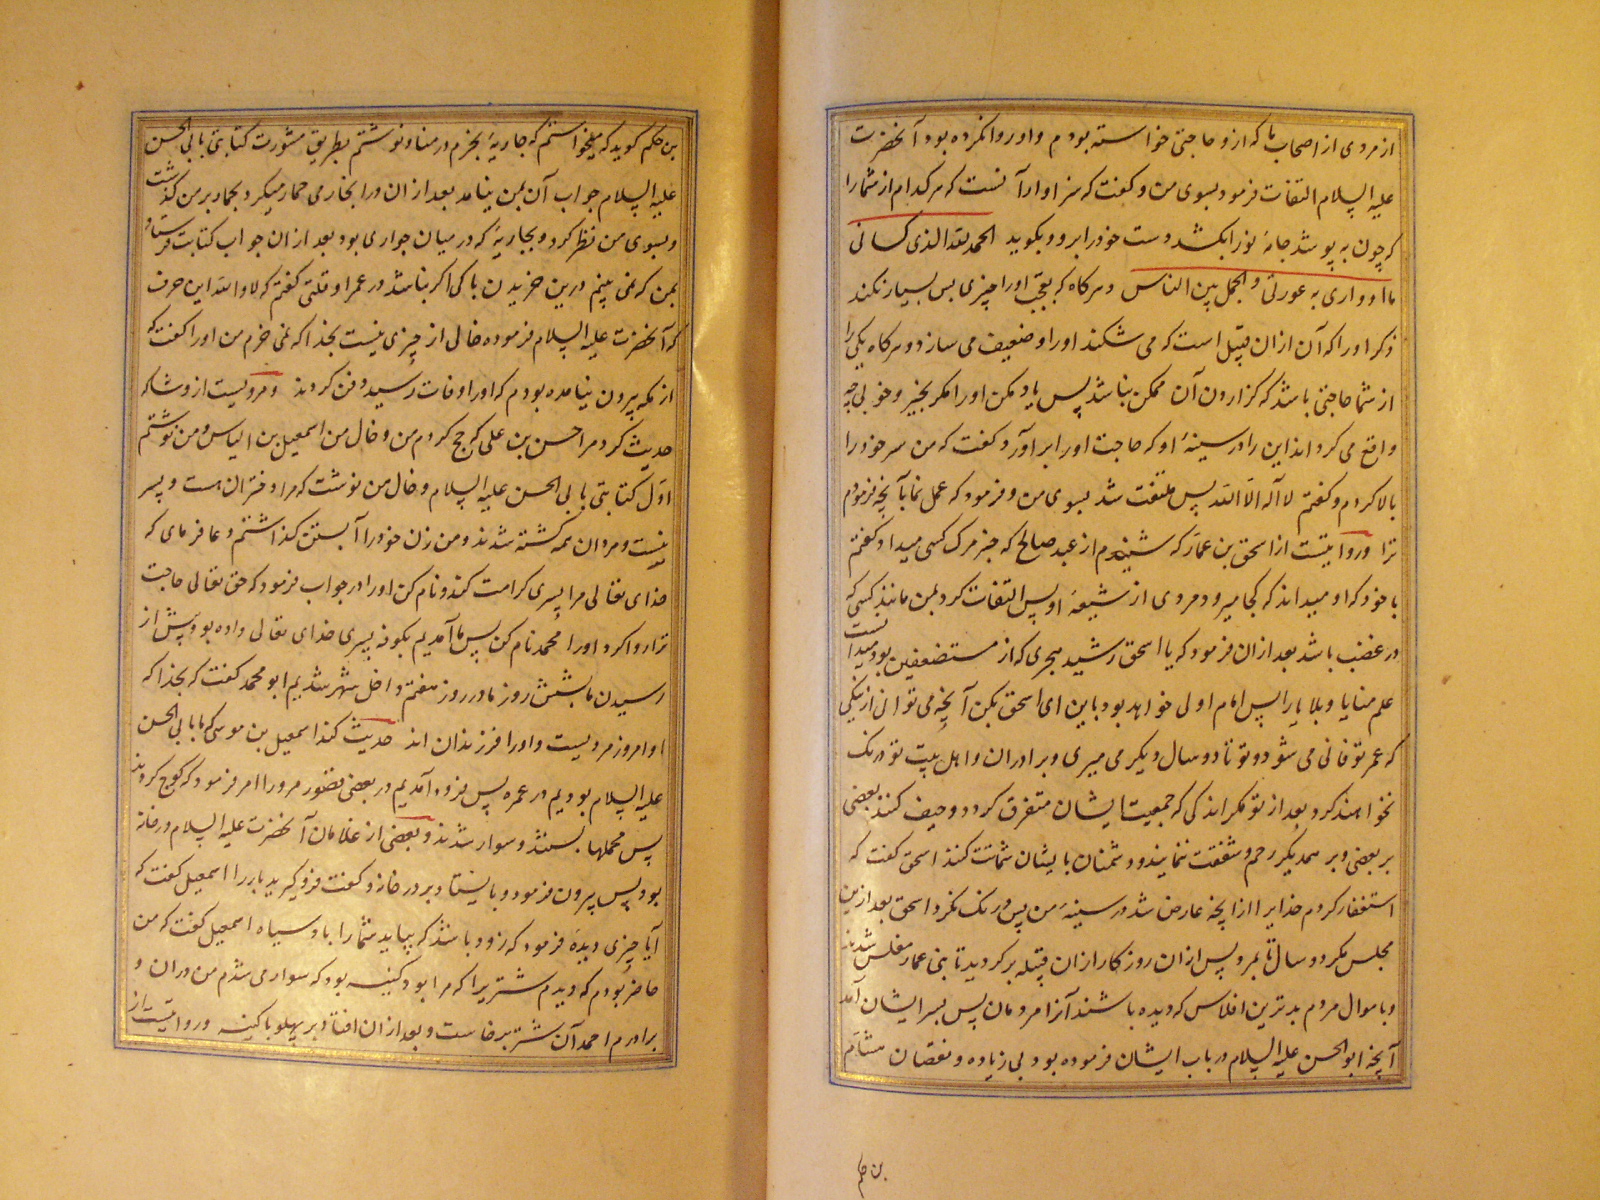 از مردی از اصحاب ما که ازو حاجتی خواسته بودم و او روا نکرده بود آنحضرت
علیه السلام التفات فرمود بسوی من و گفت که سزاوار آنست که هر کدام از شما را
که چون به پوشد جامهٔ نو را بکشد دست خود را برو و بگوید الحمد لله الذی کسانی
ما اوواری به عورتی و اتجمل بین الناس و هرگاه که بعجب اورا چیزی پس بسیار نکند
ذکر او را که آن از ان قبیل است که می شکند او را و ضعیف می سازد و هرگاه یکی را
از شما حاجتی باشد که گزاردن آن ممکن نباشد پس یاد مکن اورا مگر بخیر و خوبی چه
واقع می گرداند این را در سینهٔ او که حاجت او را بر آورد گفت که من سر خود را
بالا کردم و گفتم لا اله الا الله پس ملتفت شد بسوی من و فرمود که عمل نما بآنچه فرمودم
ترا و روایتست از اسحق بن عمار که شنیدم از عبد صالح که خبر مرگ کسی میداد گفتم
با خود که او میداند که کجا میرود مردی از شیعهٔ او پس التفات کرد بمن مانند کسی که
در غضب باشد بعد از ان فرمود که یا اسحق رشید هجری که از مستضعفین بود میدانست
علم منایا و بلایا را پس امام اولی خواهد بود باین ای اسحق بکن آنچه می توانی از نیکی
که عمر تو فانی می شود و تو تا دو سال دیگر می میری و برادران و اهل بیت تو درنگ
نخواهند کرد بعد از تو مگر اندکی که جمعیت ایشان متفرق گردد و حیف کنند بعضی
بر بعضی و بر همدیگر رحم و شفقت ننمایند و دشمنان بایشان شماتت کنند اسحق گفت که
استغفار کردم خدایرا از آنچه عارض شد در سینهٔ من پس درنگ نکرد اسحق بعد ازین
مجلس مگر دو سال تا بمرد پس از ان روزگار از ان قبیله برگردید تا بنی عمار مفلس شدند
و باموال مردم بدترین افلاس که دیده باشند آنرا مردمان پس بسر ایشان آمد
آنچه ابو الحسن علیه السلام در باب ایشان فرموده بود بی زیاده و نقصان هشام
بن حکم
بن حکم گوید که میخواستم که جاریهٔ بخرم در منا و نوشتم بطریق مشورت کتابتی بابی الحسن
علیه السلام جواب آن بمن نیامد بعد از ان در انجا رمی جمار میکرد بحمار بر من گذشت
و بسوی من نظر کرد و بجاریهٔ که در میان جواری بود بعد از ان جواب کتابت فرستاد
بمن که نمی بینم درین خریدن باکی اگر نباشد در عمر او قلتی گفتم که لا والله این حرف
که آنحضرت علیه السلام فرموده خالی از چیزی نیست بخدا که نمی خرم من او را گفت که
از مکه بیرون نیامده بودم که او را وفات رسید و دفن کردند و مرویست از وشا که
حدیث کرد مرا حسن بن علی که حج کردم من و خال من اسمعیل بن الیاس و من نوشتم
اول کتابتی بابی الحسن علیه السلام و خال من نوشت که مرا دختران هست و پسر
نیست و مردان همه کشته شدند و من زن خود را آبستن گذاشتم دعا فرمای که
خدای تعالی مرا پسری کرامت کند و نام کن او را در جواب فرمود که حق تعالی حاجت
ترا روا کرد و او را محمد نام کن پس ما آمدیم بکوفه پسری خدای تعالی داده بود پیش از
رسیدن ما بشش روز ما در روز هفتم داخل شهر شدیم ابو محمد گفت که بخدا که
او امروز مردیست و او را فرزندان اند حدیث کند اسمعیل بن موسی که ما با ابی الحسن
علیه السلام بودیم در عمره پس فرود آمدیم در بعضی قصور مرو را امر فرمود که کوچ کردند
پس محملها بستند و سوار شدند و بعضی از غلامان آنحضرت علیه السلام در خانه
بود پس بیرون فرمود و بایستاد بر در خانه و گفت فرو گیرید بار را اسمعیل گفت که
آیا چیزی دیدهٔ فرمود که زود باشد که بیاید شما را باد سیاه اسمعیل گفت که من
حاضر بودم که دیدم شتریرا که مرا بود کنیسه بود که سوار می شدم من در ان و
برادرم احمد آن شتر برخاست و بعد از ان افتاد بر پهلو با کنیسه و روایتست از